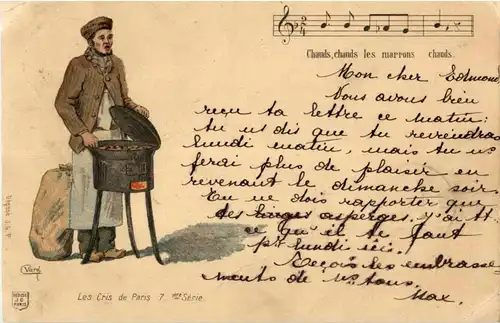 Chauds, chauds les marrons chauds.
Mon cher Edmond
Nous avons bien
reçu ta lettre ce matin:
tu ns dis que tu reviendra
lundi matin, mais tu ns
ferai plus de plaisir en
revenant le dimanche soir.
Tu ne dois rapporter que
des asperges. y'ai tt
ce qu'il te faut
pr lundi ici.
Reçois les embrasse-
ments de ns tous.
Max.
Déposé
Les Cris de Paris 7. Série.